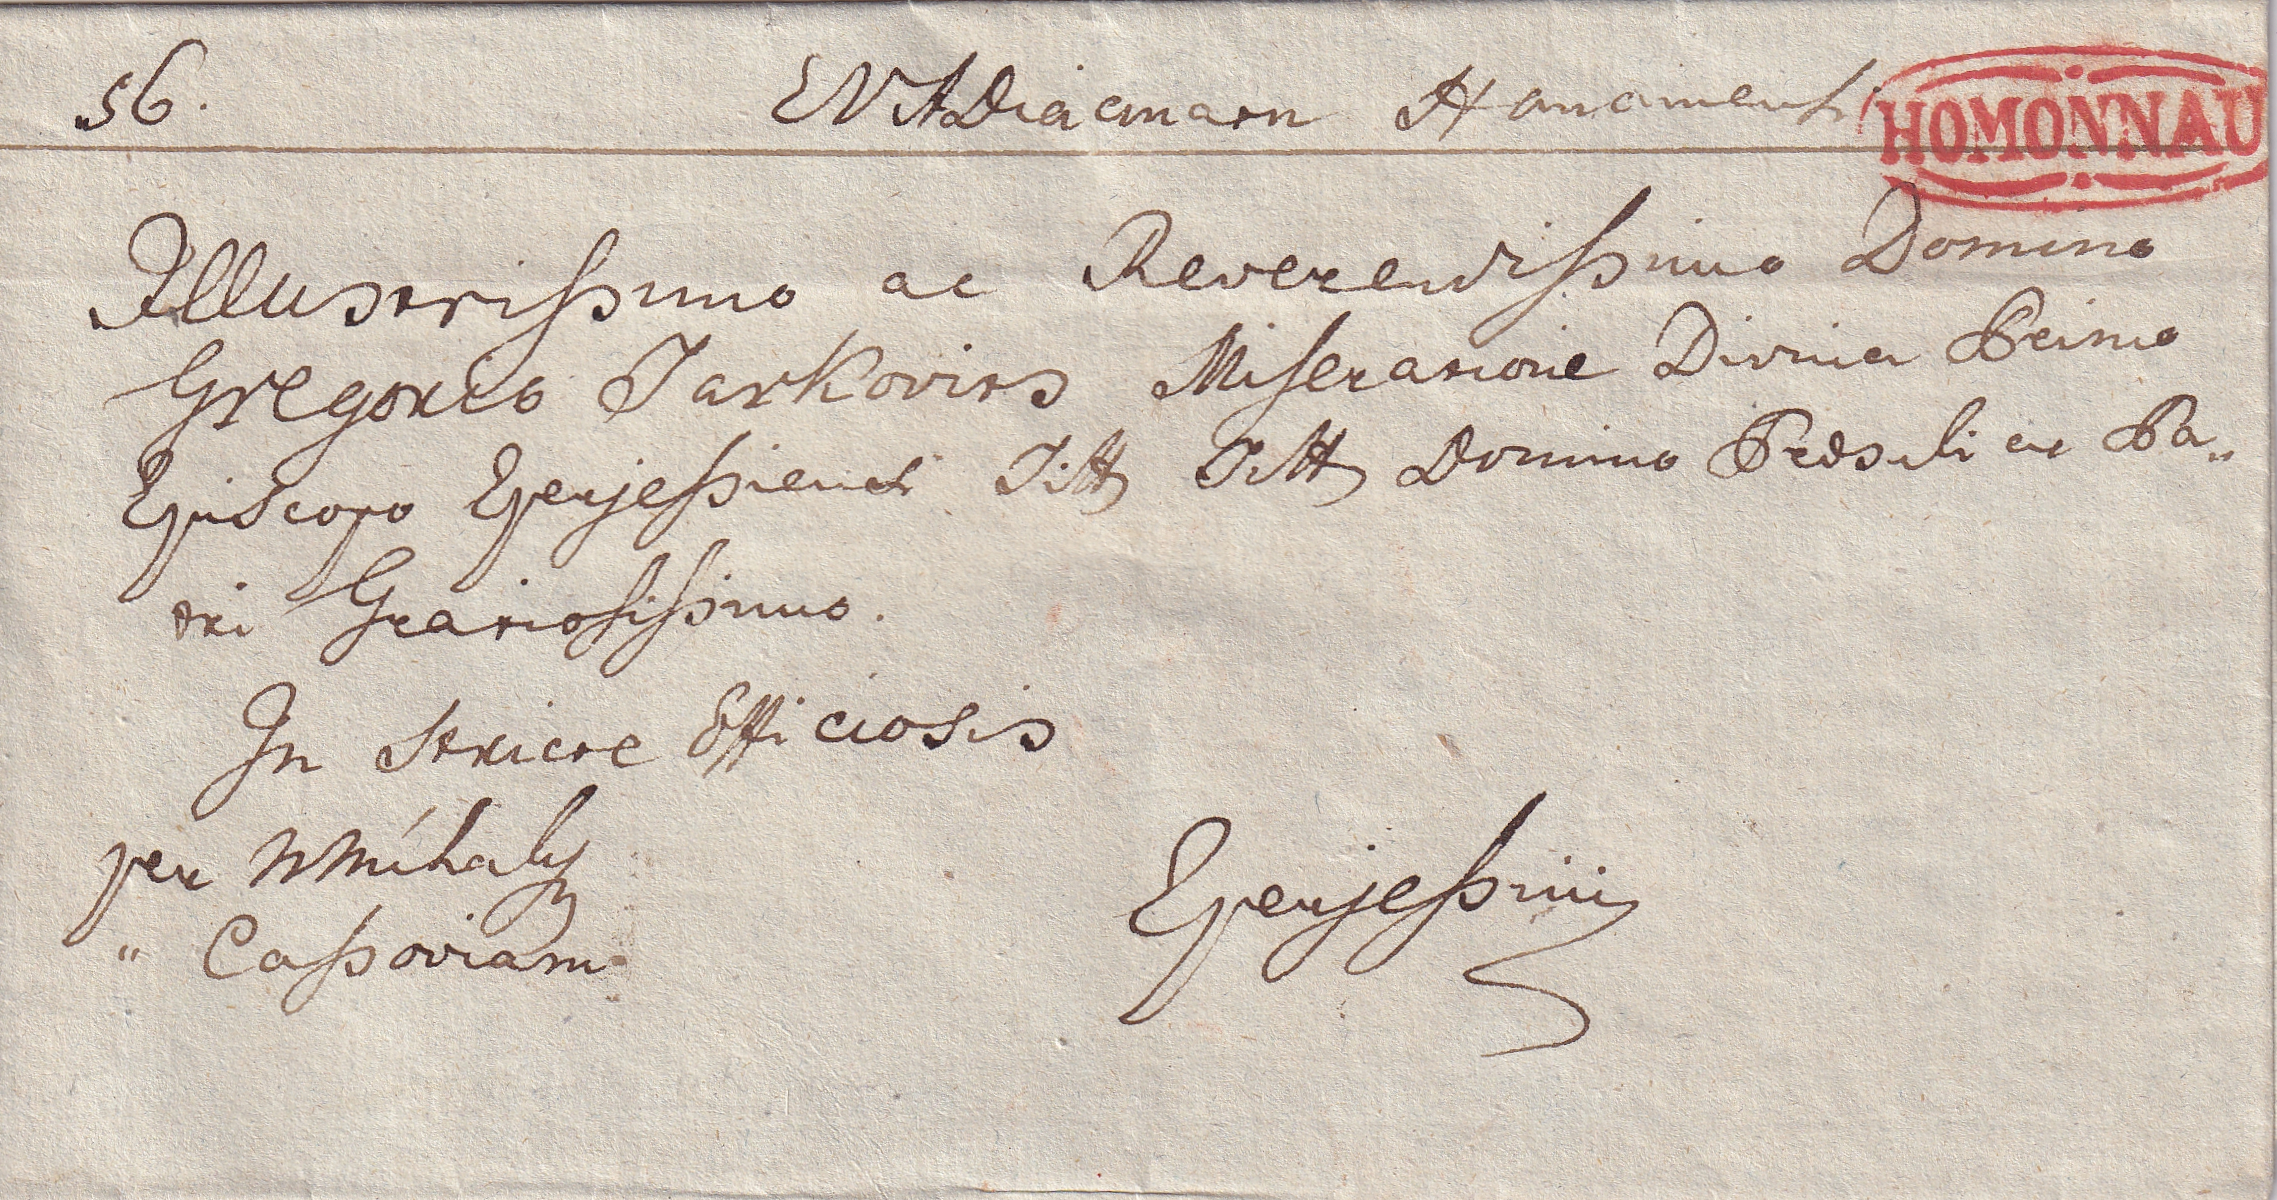 56. EVADiaconatu Homonnensi HOMONNAU
Illustrissimo ac Reverendissimo Domino
Gregorio Tarkovits Miseratione Divina Primo
Episcopo Eperjessiensi Titt Titt Domino Presuli ac Pa„
tri Gratiosissimo.
In stricte Officiosis
per NMihaly
" Cassoviam
Eperjessini